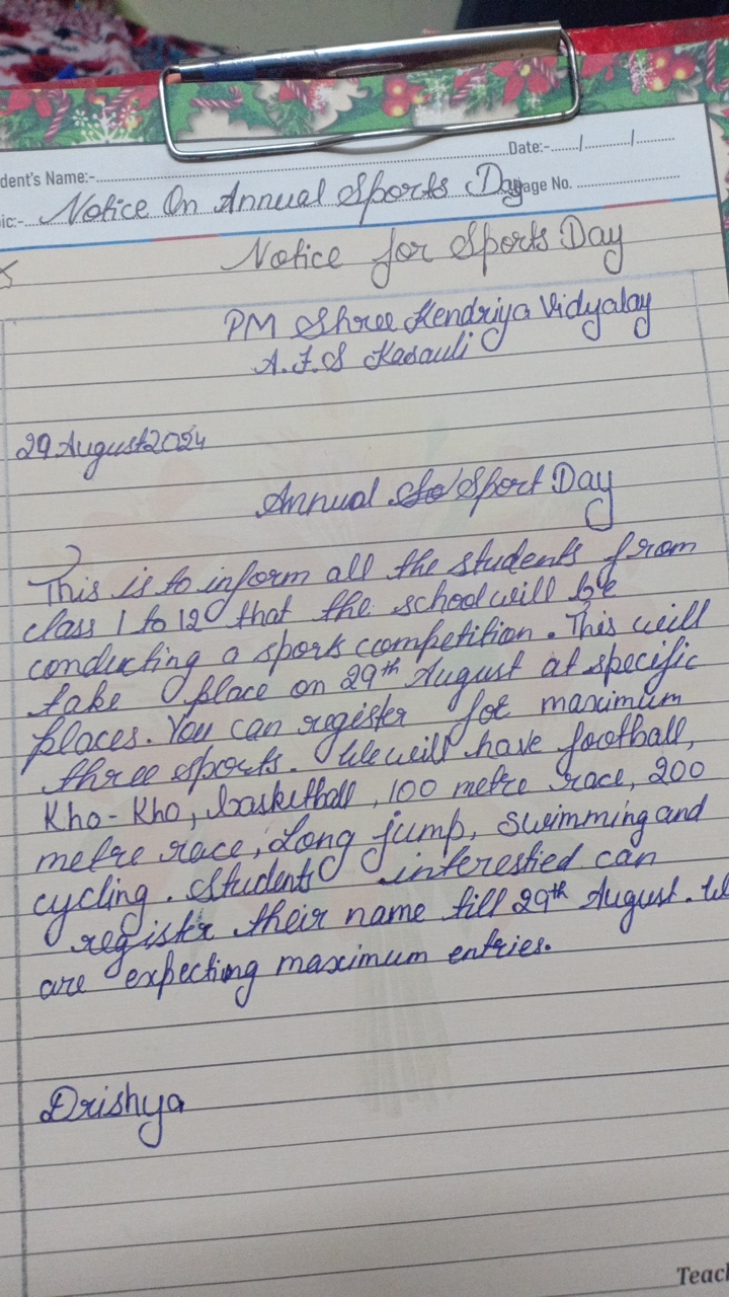 Date:-......./.........../..........
dent's Name:-
ic:- Notice On Annual Sports Day age No.
Notice for Sports Day
PM Shree Kendriya Vidyalay
A.F.S Kasauli
29 August 2024
Annual Sport Day
This is to inform all the students from
class 1 to 12 that the school will be
conducting a sports competition. This will
take place on 29th August at specific
places. You can register for maximum
three sports. We will have football,
Kho-Kho, basketball, 100 metre race, 200
metre race, Long jump, swimming and
cycling. Students interestied can
register their name till 29th August. We
are expecting maximum entries.
Drishya
Teach